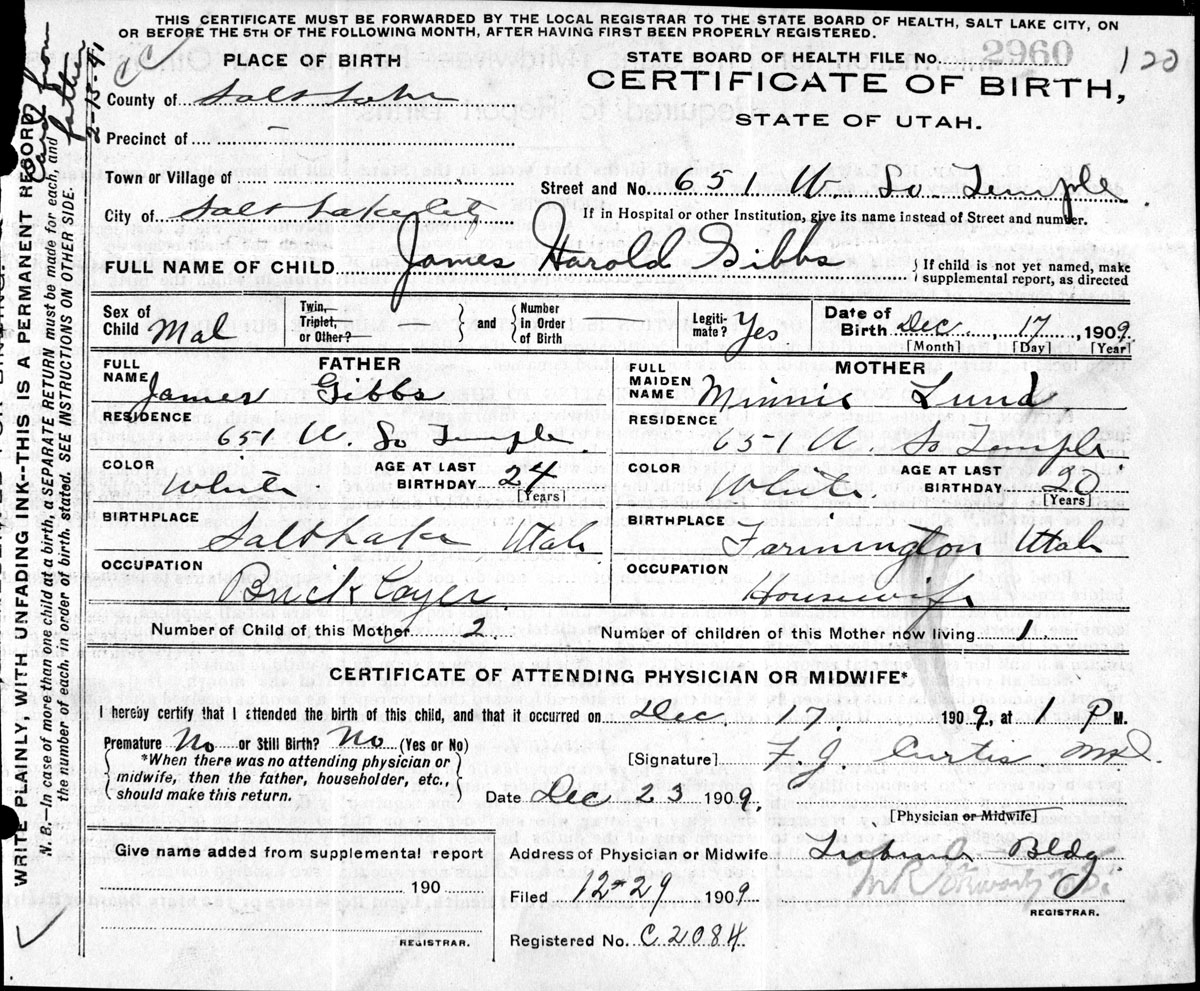 THIS CERTIFICATE MUST BE FORWARDED BY THE LOCAL REGISTRAR TO THE STATE BOARD OF HEALTH, SALT LAKE CITY, ON
OR BEFORE THE 5TH OF THE FOLLOWING MONTH, AFTER HAVING FIRST BEEN PROPERLY REGISTERED.
PLACE OF BIRTH
STATE BOARD OF HEALTH FILE No. 2960 120
County of Salt Lake
CERTIFICATE OF BIRTH,
STATE OF UTAH.
Precinct of –
Town or Village of
Street and No. 651 W. So Temple
City of Salt Lake City
If in Hospital or other Institution, give its name instead of Street and number.
FULL NAME OF CHILD James Harold Gibbs
{ If child is not yet named, make
supplemental report, as directed
Sex of Child Mal
Twin, Triplet, or Other?
and { Number in Order of Birth
Legiti-mate? Yes
Date of Birth Dec 17, 1909.
[Month] [Day] [Year]
FATHER
FULL NAME James Gibbs
RESIDENCE
651 W. So Temple
COLOR White
AGE AT LAST BIRTHDAY 24
[Years]
BIRTHPLACE
Salt Lake Utah
OCCUPATION
Brick Layer.
MOTHER
FULL MAIDEN NAME Minnie Lund
RESIDENCE
651 W. So Temple
COLOR White
AGE AT LAST BIRTHDAY 20
[Years]
BIRTHPLACE
Farmington Utah
OCCUPATION
Housewife
Number of Child of this Mother 2
Number of children of this Mother now living 1.
CERTIFICATE OF ATTENDING PHYSICIAN OR MIDWIFE*
I hereby certify that I attended the birth of this child, and that it occurred on Dec. 17. 1909, at 1 P M.
Premature No or Still Birth? No (Yes or No)
{ *When there was no attending physician or
midwife, then the father, householder, etc.,
should make this return. }
[Signature] F. J. Curtis MD.
Date Dec 23 1909.
[Physician or Midwife]
Give name added from supplemental report
190
REGISTRAR.
Address of Physician or Midwife Tribune Bldg
Filed 12-29 1909
REGISTRAR.
Registered No. C 2084
WRITE PLAINLY, WITH UNFADING INK--THIS IS A PERMANENT RECORD
N. B.—In case of more than one child at a birth, a SEPARATE RETURN must be made for each, and
the number of each, in order of birth, stated. SEE INSTRUCTIONS ON OTHER SIDE.
Card from
father
2-15-41